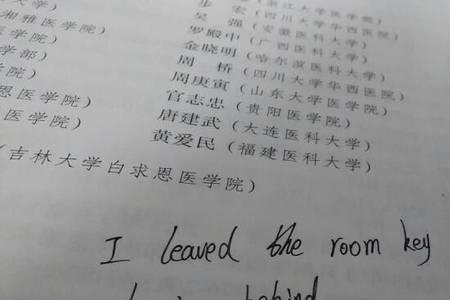 大学) (浙江大学医学院)
湘雅医学院) 步 宏 (四川大学华西医院)
医学院) 吴 强 (安徽医科大学)
学部) 罗殿中 (广西医科大学)
医学院) 金晓明 (哈尔滨医科大学)
周 桥 (四川大学华西医院)
医学院) 周庚寅 (山东大学医学院)
恩医学院) 官志忠 (贵阳医学院)
医学院) 唐建武 (大连医科大学)
黄爱民 (福建医科大学)
(吉林大学白求恩医学院)
I leaved the room key
behind